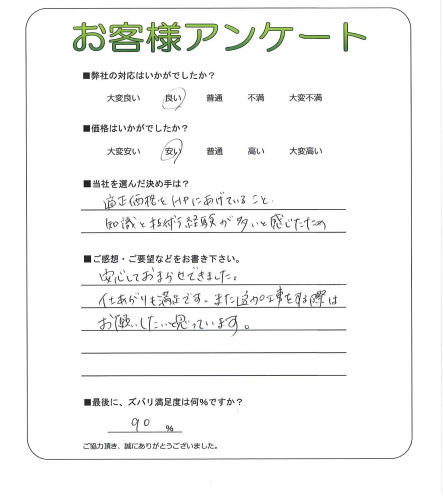 お客様アンケート
■弊社の対応はいかがでしたか?
大変良い 良い 普通 不満 大変不満
■価格はいかがでしたか?
大変安い 安い 普通 高い 大変高い
■当社を選んだ決め手は?
適正価格をHPにあげていること.
知識と技術経験が多いと感じたため
■ご感想・ご要望などをお書き下さい。
安心しておまかせできました。
仕あがりも満足です。また追加工事をする際は
お願いしたいと思っています。
■最後に、ズバリ満足度は何%ですか?
90 %
ご協力頂き、誠にありがとうございました。